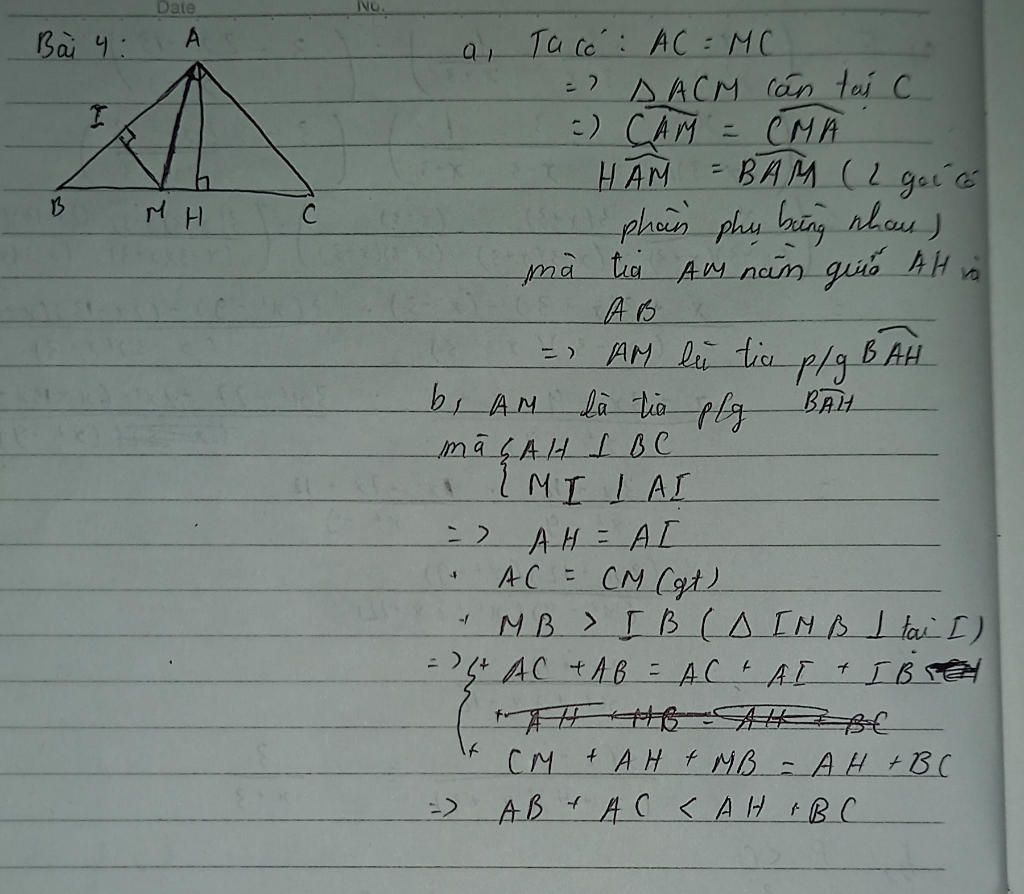 Date No.
Bài 4:
A
I
B M H C
a, Ta có: AC = MC
=> Δ ACM cân tại C
=> CAM = CMA
HAM = BAM (2 góc có
phần phụ bằng nhau)
mà tia AM nằm giữa AH và
AB
=> AM là tia p/g BAH
b, AM là tia p/g BAH
mà { AH ⊥ BC
{ MI ⊥ AI
=> AH = AI
+ AC = CM (gt)
+ MB > IB (Δ IMB ⊥ tại I)
=> { + AC + AB = AC + AI + IB
+ AH + MB = AH + BC
+ CM + AH + MB = AH + BC
=> AB + AC < AH + BC